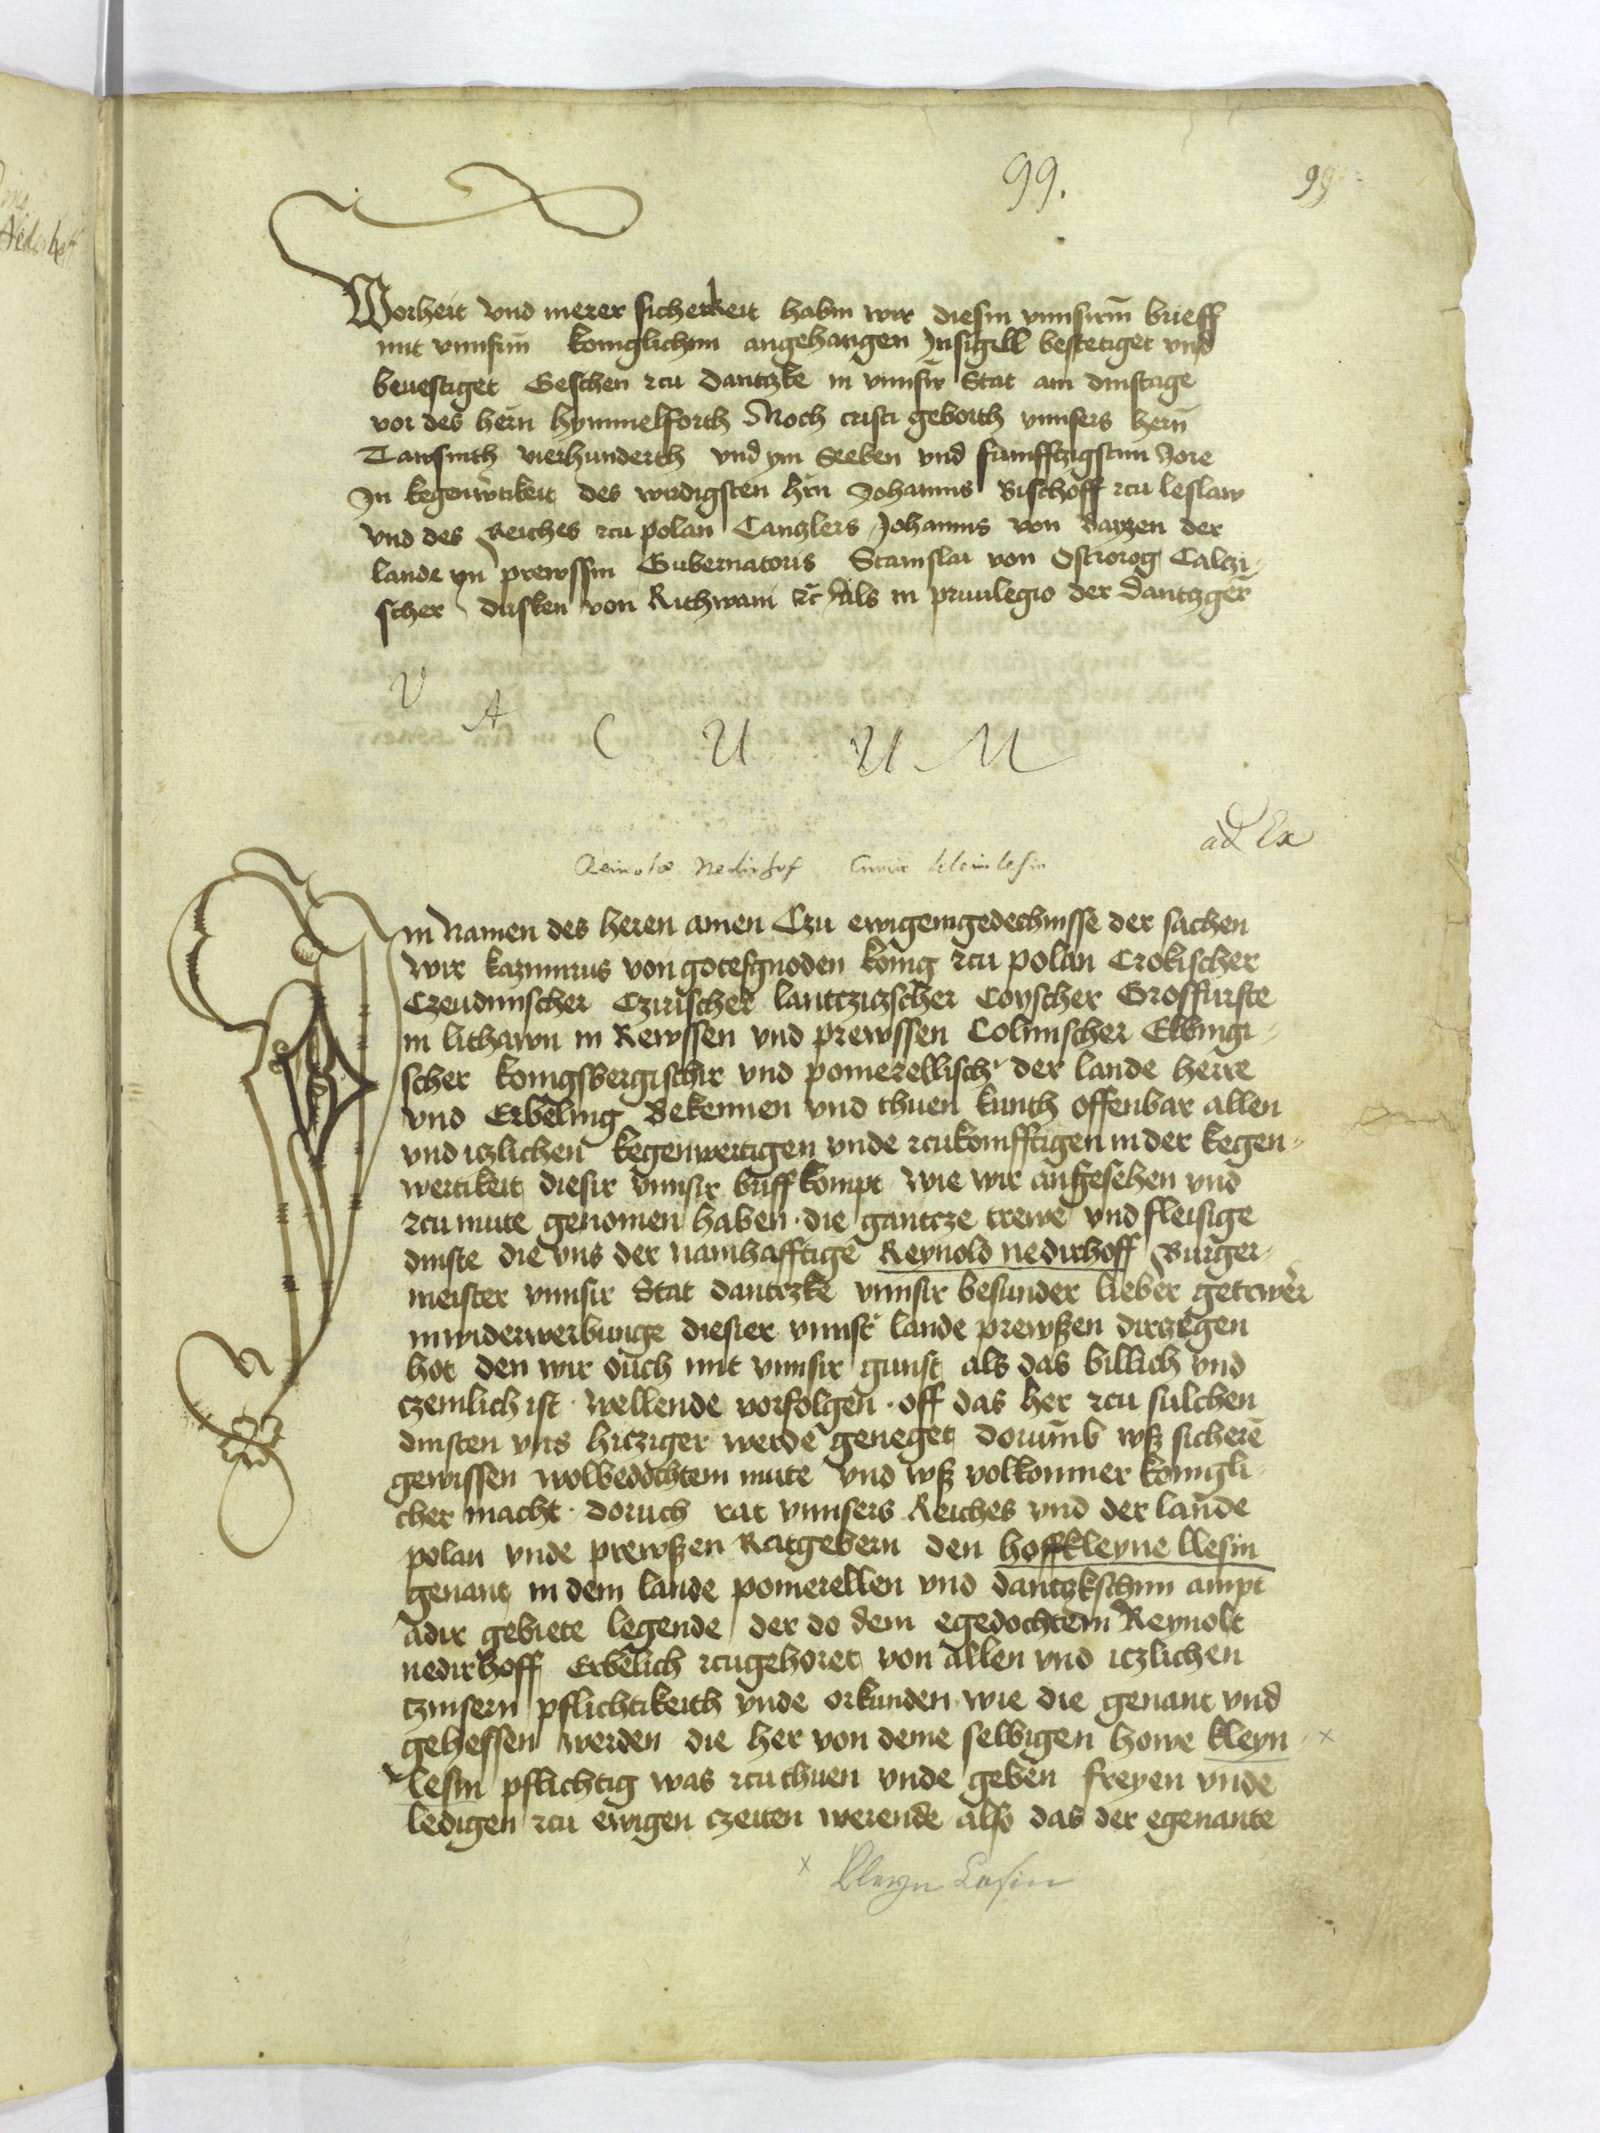 99.
99
Worheit vnd merer sicherkeit habin wir diesin vnnsirnn brieff
mit vnnsirm koniglichinn angehangen Insigill bestetiget vnd
beuestiget Geschen zcu dantzke in vnnsir Stat am dinstage
vor des hern hymmelforth Noch cristi geborth vnnsers hern
Tawsinth vierhunderth vnd ym Seeben vnd fumfftzigstnn Jore
In kegenwertikeit des wirdigsten hern Johannis Bischoff zcu leslaw
vnd des Reiches zcu polan Canzlers Johannis von Bayzen der
lande yn prewssin Gubernatoris Stanislai von Ostrorog Calczi-
scher dirslen von Rithwani etc als in priuilegio der dantzger
V A C U U M
ad Ex
Reinold Nedirhof Curia klein lesin
In Namen des heren amen Czu ewigemgedechnisse der sachen
wir kazimirus von gotesgnoden konig zcu polan Crokischer
Czeudmischer Cziriischer lantczizscher Coyscher Grosfurste
in lithawn in Rewssen vnd prewssen Colmischer Elbingi-
scher konigsbergischir vnd pomerellischer der lande herre
vnd Erbeling Bekennen vnd thuen kunth offenbar allen
vnd iczlichen kegenwertigen vnde zcukomfftigen in der kegen-
wertikeit diesir vnnsir briff kompt wie wir angesehen vnd
zcu mute genomen haben die gantcze trewe vnd fleisige
dinste die vns der namhafftige Reynold nedirhoff Burger-
meister vnnsir Stat dantczke vnnsir besunder lieber getrwer
inwiderwerbunge diesier vnnser lande prewszen dirzegen
hot den wir ouch mit vnnsir gunst als das billich vnd
czemlich ist wellende vorfolgen off das her zcu sulchen
dinsten vns hicziger werde geneget dorumb wsz sichere
gewissen wolbedochtem mute vnd wsz volkommer konigli-
cher macht doruch rat vnnsers Reiches vnd der lande
polan vnde prewszen Ratgebern den hoff kleyne llesin
genant in dem lande pomerellen vnd dantzkschnn ampt
adir gebiete legende der do dem egedochtem Reynolt
nedirhoff Erbelich zcugehoret von allen vnd iczlichen
czinsern pflichtikeith vnde orkunden wie die genant vnd
gehessen werden die her von deme selbigen howe kleyn x
lesin pflichtig was zcu thuen vnde geben freyen vnde
ledigen zcu ewigen czeiten werende also das der egenante
x Kleyn Lesin